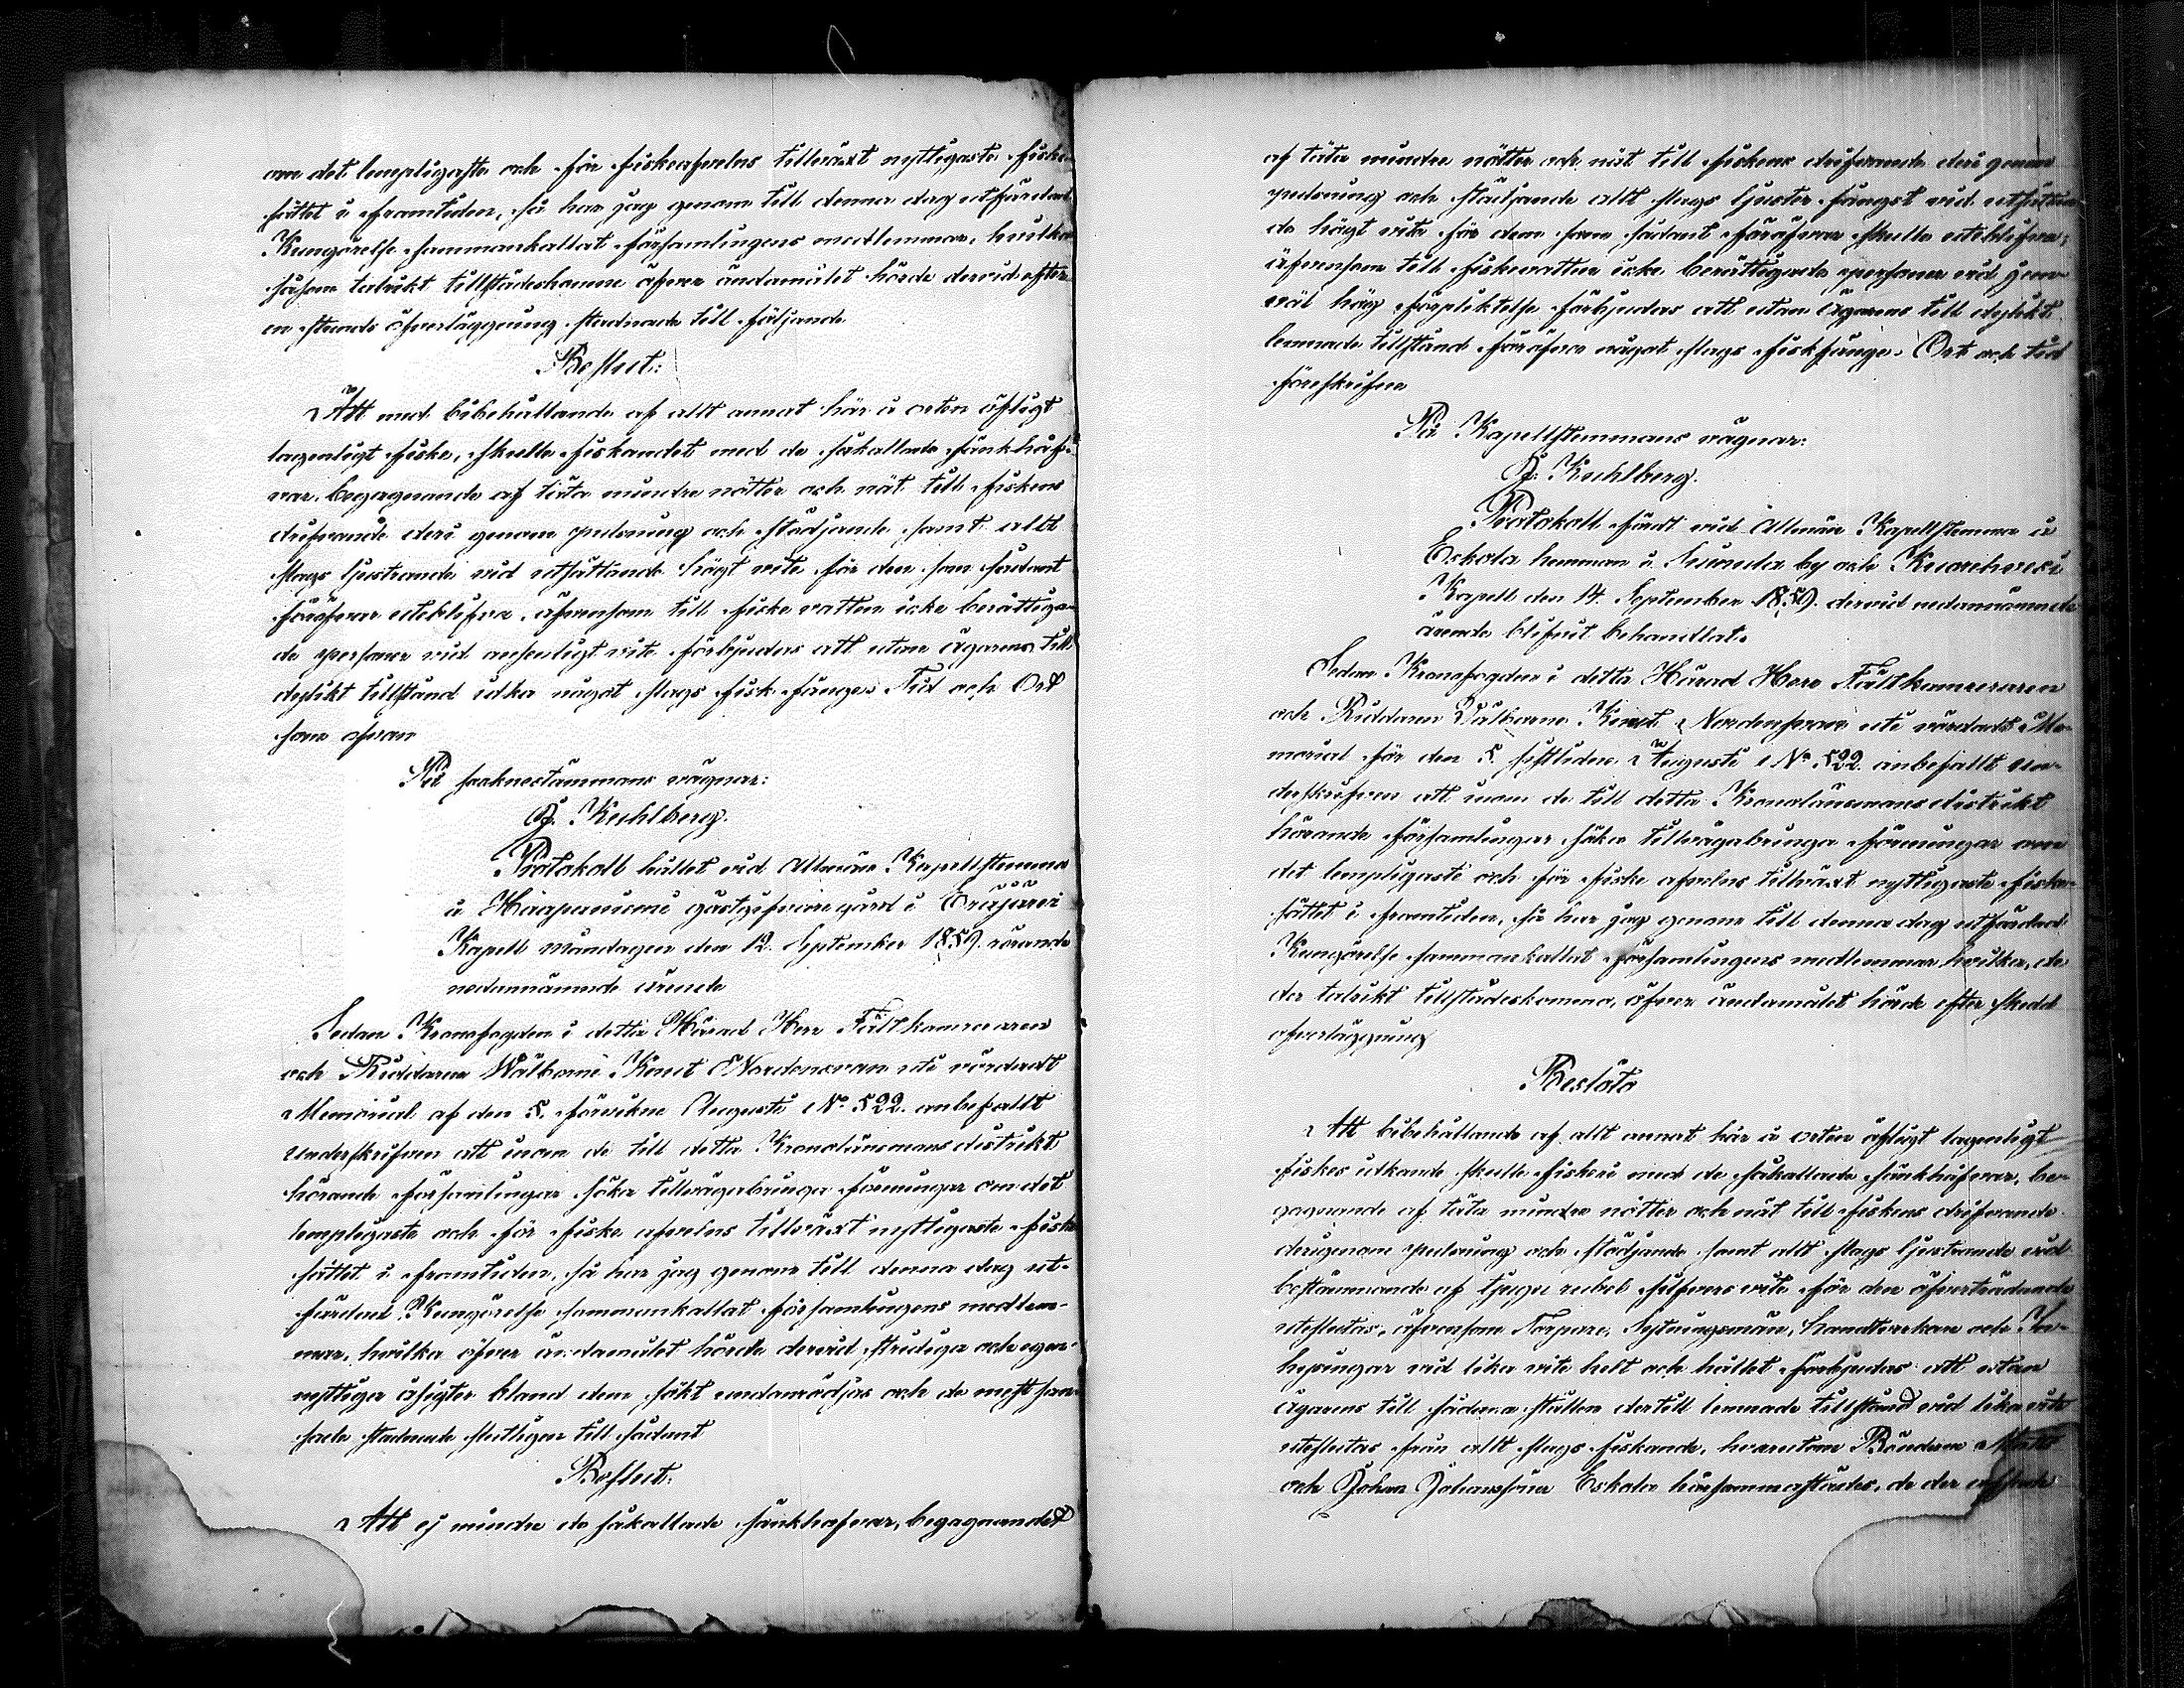 om det lempligaste och för fiskeafvelns tillväxt nyttigaste fiske-
sättet i framtiden, så har jag genom till denna dag utfärdad
Kungörelse sammankallat församlingens medlemmar, hvilka
såsom talrikt tillstädeskomne öfver ändamålet hörde dervid efter
en stunds öfverläggning stadnade till följande
Beslut:
Att med bibehållande af allt annat här i orten öfligt
lagenligt fiske, skulle fiskandet med de såkallade sänkhåf-
var, begagnande af täta mindre nötter och nät till fiskens
drifvande deri genom pulsning och stödjande samt allt
slags ljustrande vid utsättande högt vite för den som sådant
föröfvar uteblifva, äfvensom till fiske vatten icke berättiga-
de personer vid ansenligt vite förbjudes att utan ägarens till
dylikt tillstånd idka något slags fisk fänge. Tid och Ort
som ofvan
På socknestämmans vägnar:
J. Kuhlberg.
Protokoll hållet vid Allmän Kapellstemma
i Haapaniemi gästgifvaregård i Eräjärvi
Kapell måndagen den 12. September 1859. rörande
nedannämnde ärende
Sedan Kronofogden i detta Härad Herr Fältkamreraren
och Riddaren Wälborne Knut Nordensvan uti vördadt
Memorial af den 5. förvikne Augusti No 522. anbefallt
underskrifven att inom de till detta Kronolänsmans distrikt
hörande församlingar söka tillvägabringa föreningar om det
lempligaste och för fiske afvelns tillväxt nyttigaste fiske
sättet i framtiden, så har jag genom till denna dag ut-
färdad Kungörelse sammankallat församlingens medlem-
mar, hvilka öfver ändamålet hörde dervid stridiga och egen-
nyttiga åsigter bland dem sökt undanrödjas och de mest
stadnade slutligen till sådant
Beslut:
Att ej mindre de såkallade sänkhafvar, begagnandet
af täta mindre nötter och nät till fiskens drifvande deri genom
pulsning och stödjande allt slags ljuster fångst vid utsättan-
de högt vite för dem som sådant föröfvar skulle uteblifva;
äfvensom till fiskevatten icke berättigade personer vid jem-
väl hög förpliktelse förbjudas att utan Ägarens till dylikt
lemnade tillstånd föröfva något slags fiskfänge. Ort och tid
föreskrifven
På Kapellstemmans vägnar:
J. Kuhlberg.
Protokoll fördt vid Allmän Kapellstemma i
Eskola hemman i by och Kuorehvesi
Kapell den 14. September 1859. dervid nedannämnde
ärende blifvit behandlat.
Sedan Kronofogden i detta Härad Herr Fältkamreraren
och Riddaren Välborne Knut Nordensvan uti vördadt Me-
morial för den 5. sistliden Augusti No 522. anbefallt un-
derskrifven att inom de till detta Kronolänsmansdistrikt
hörande församlingar söka tillvägabringa föreningar om
det lempligaste och för fiske afvelns tillväxt nyttigaste fiske-
sättet i framtiden, så har jag genom till denna dag utfärdad
Kungörelse sammankallat församlingens medlemmar hvilka, de
der talrikt tillstädeskomna, öfver ändamålet hörde efter skedd
öfverläggning
Beslöto
Att bibehållande af allt annat här i orten öfligt lagenligt
fiskes idkande skulle fiskeri med de såkallade sänkhåfvar, be-
gagnande af täta mindre nötter och nät till fiskens drifvande
derigenom pulsning och stödjande samt allt slags ljustrande vid
bestämmande af tjugu rubel silfvers vite för den öfverträdande
uteslutas, äfvensom Torpare, Sytningsmän, handtverkare och In-
hysingar vid lika vite helt och hållet förbjudas att utan
ägarens till sådana ställen dertill lemnade tillstånd vid lika vite
uteslutas från allt slags fiskande, hvarutom Bönderne Matts
och Johan Johanssöner Eskola härsammastädes, de der